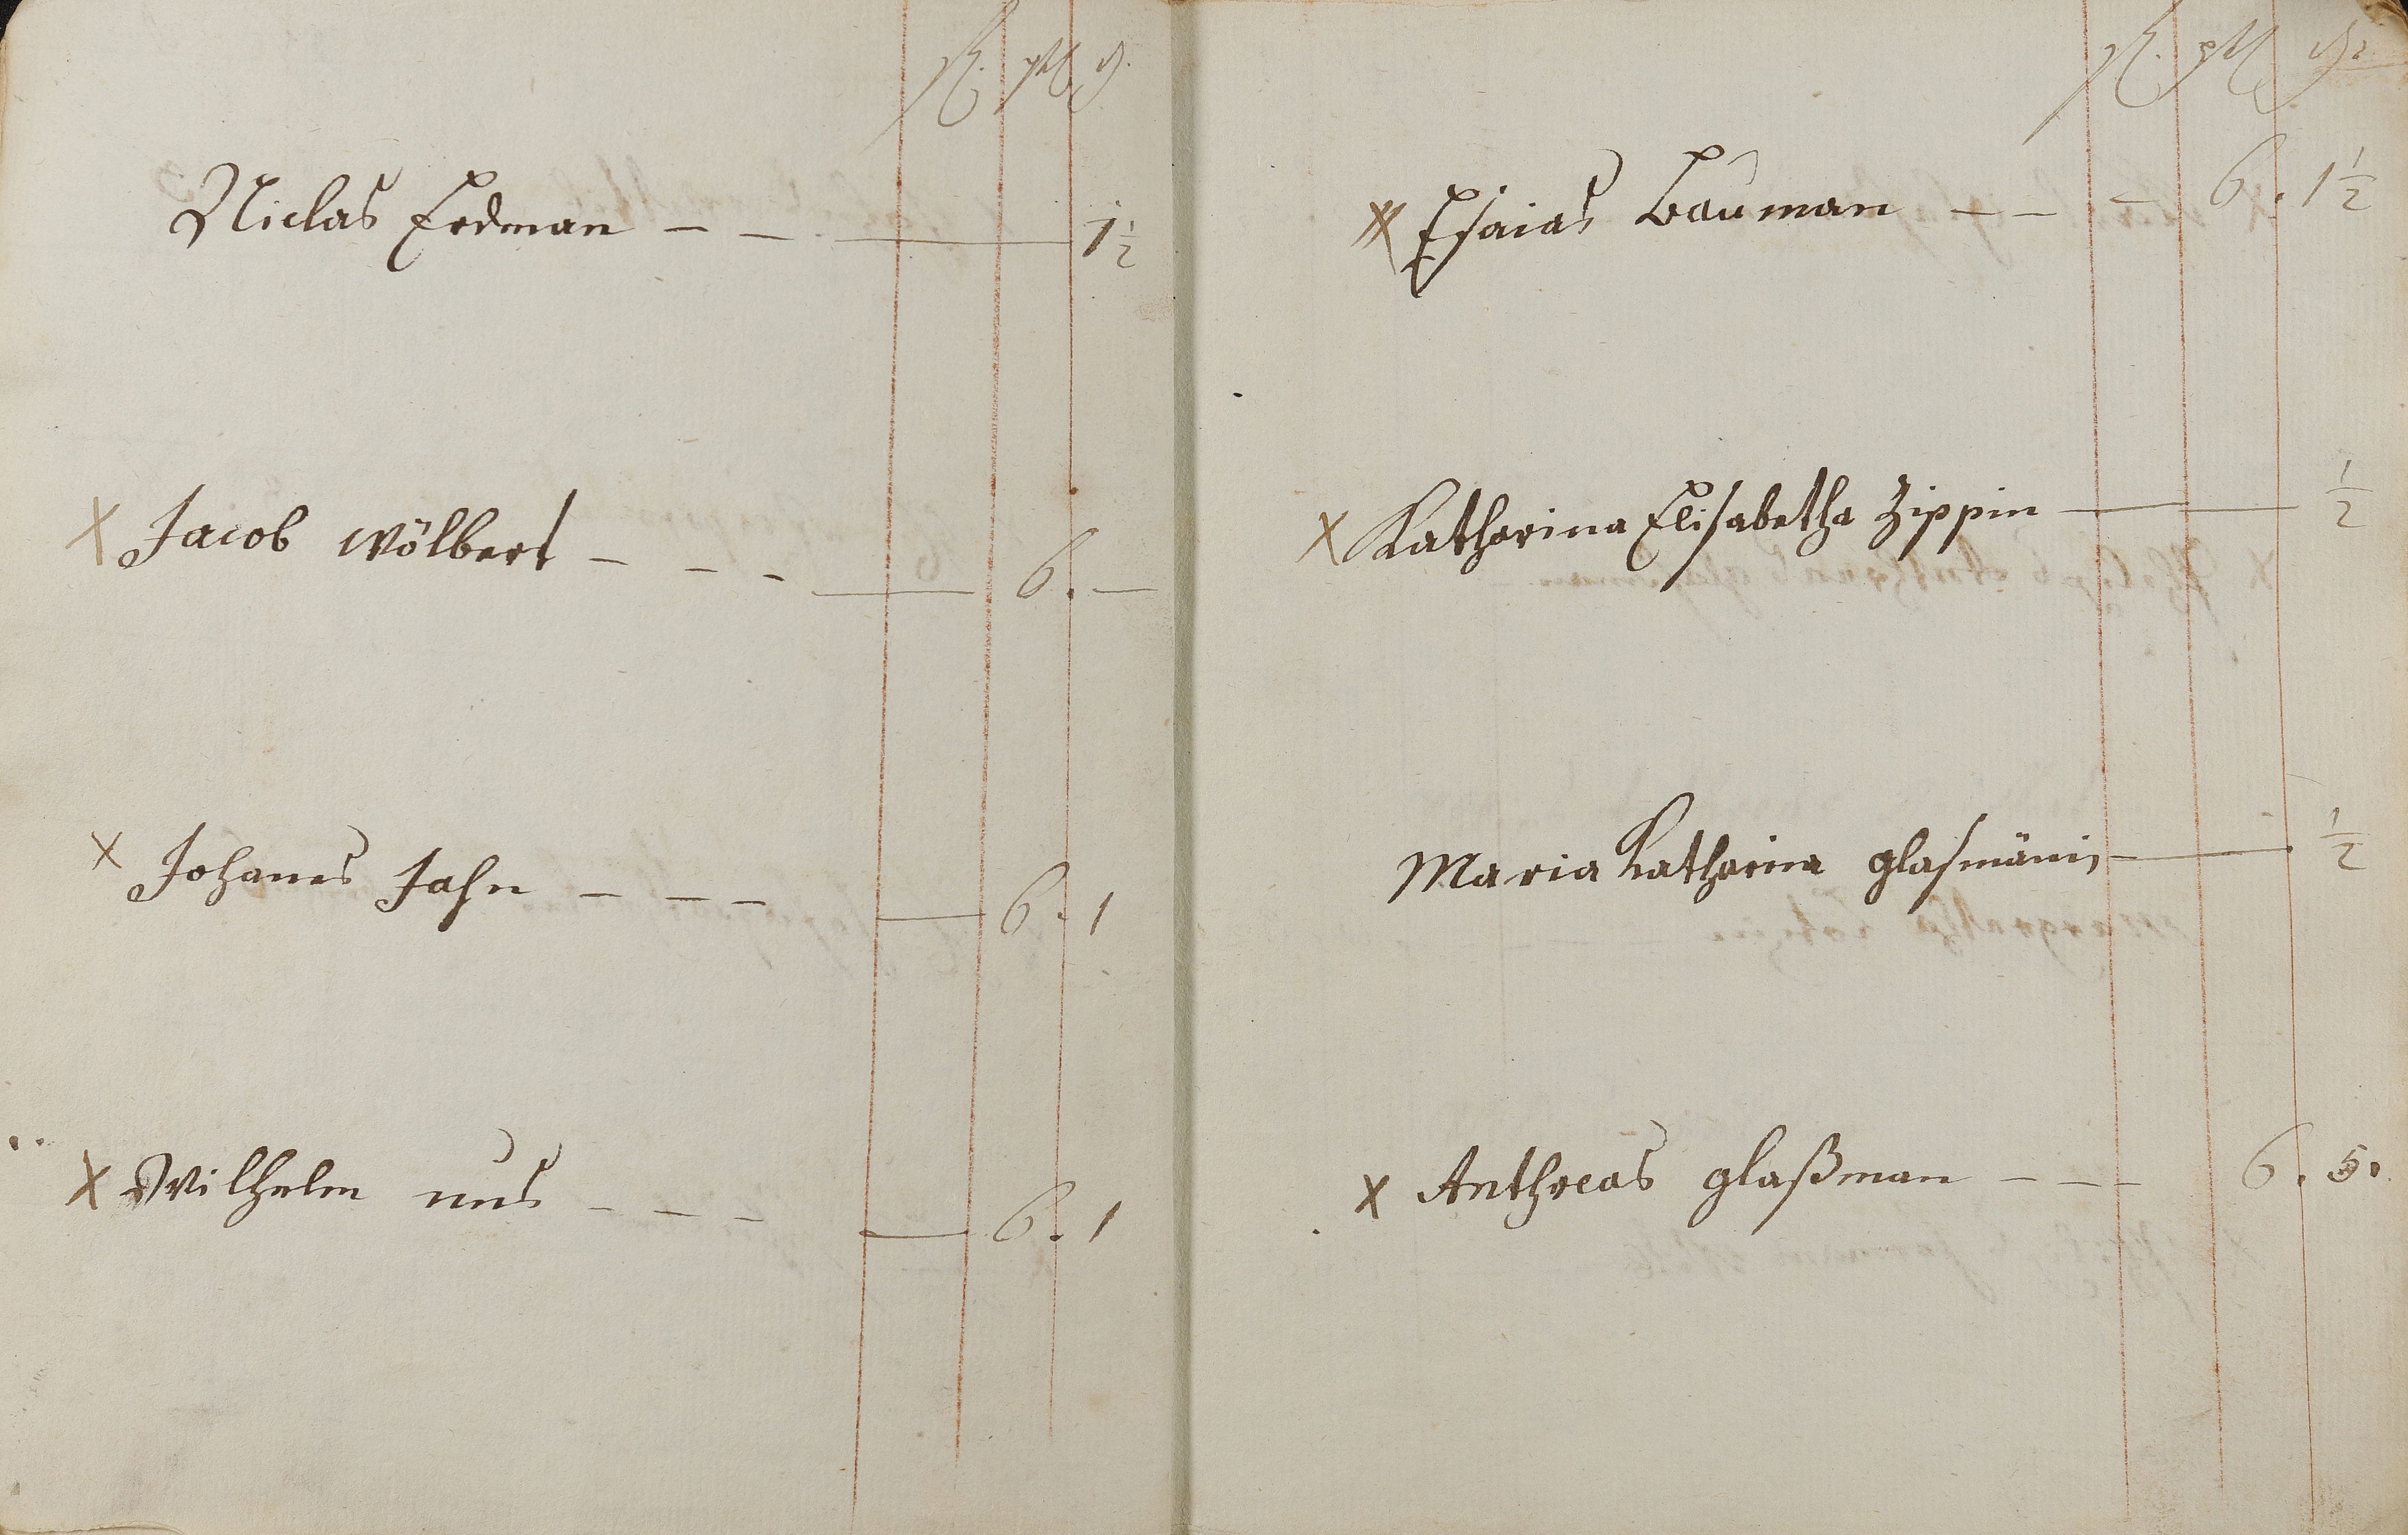 fl. btz ₰.
Niclas Erdman – – — 1 1/2
x Jacob Wölbert – – – — 6. —
x Johanes Jahn – – – — 6. 1
x Wilhelm nus – – – — 6. 1
fl. btz ₰.
x Esaias Bauman – – – 6. 1 1/2
x Katharina Elisabetha Zippin — 1/2
Maria Katharina glasmänin — 1/2
x Anthreas glaßman – – – 6. 5.